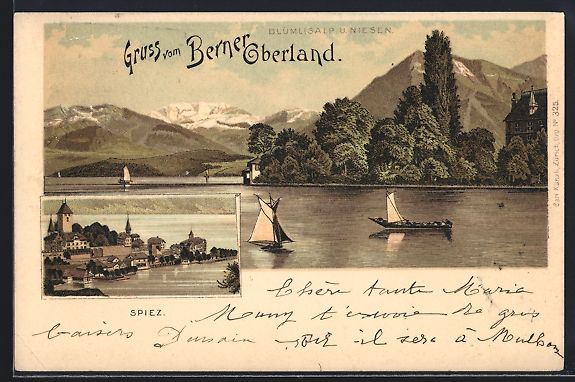 BLÜMLISALP U. NIESEN.
Gruss vom Berner Oberland.
Carl Künzli, Zürich. Dep. № 325.
SPIEZ.
Chère tante Maria
Mamy t'envoie de gros
baisers Demain soir il sera à Mulhouse